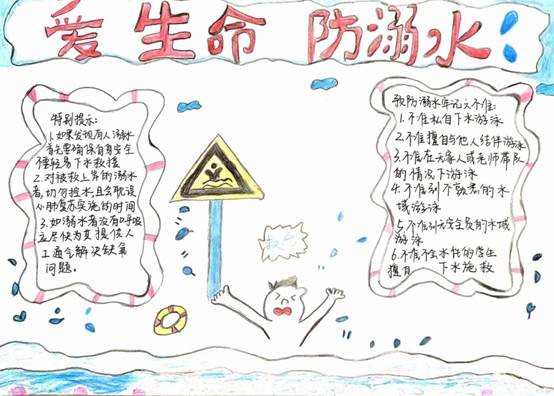 爱生命 防溺水
特别提示:
1.如果发现有人溺水
首先要确保自身安全
不轻易下水救援
2.对被救上岸的溺水
者,切勿控水,且会耽误
心肺复苏实施的时间
3.如溺水者没有呼吸
应尽快为其提供人
工通气解决缺氧
问题。
救命
预防溺水牢记六不准:
1.不准私自下水游泳
2.不准擅自与他人结伴游泳
3.不准在无家人或老师带队
的情况下游泳
4.不准到不熟悉的水
域游泳
5.不准到无安全员的水域
游泳
6.不准不会水性的学生
擅自下水施救